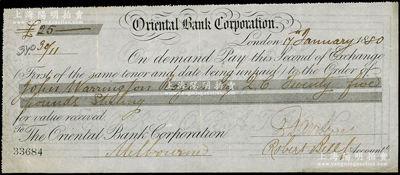 上海阳明拍卖
Oriental Bank Corporation.
£ 25
London 17th January 1880
30/11
On demand Pay this Second of Exchange
First of the same tenor and date being unpaid to the Order of
John Warrington twenty five
pounds Sterling
for value received.
To The Oriental Bank Corporation
Melbourne
33684
Robert Account